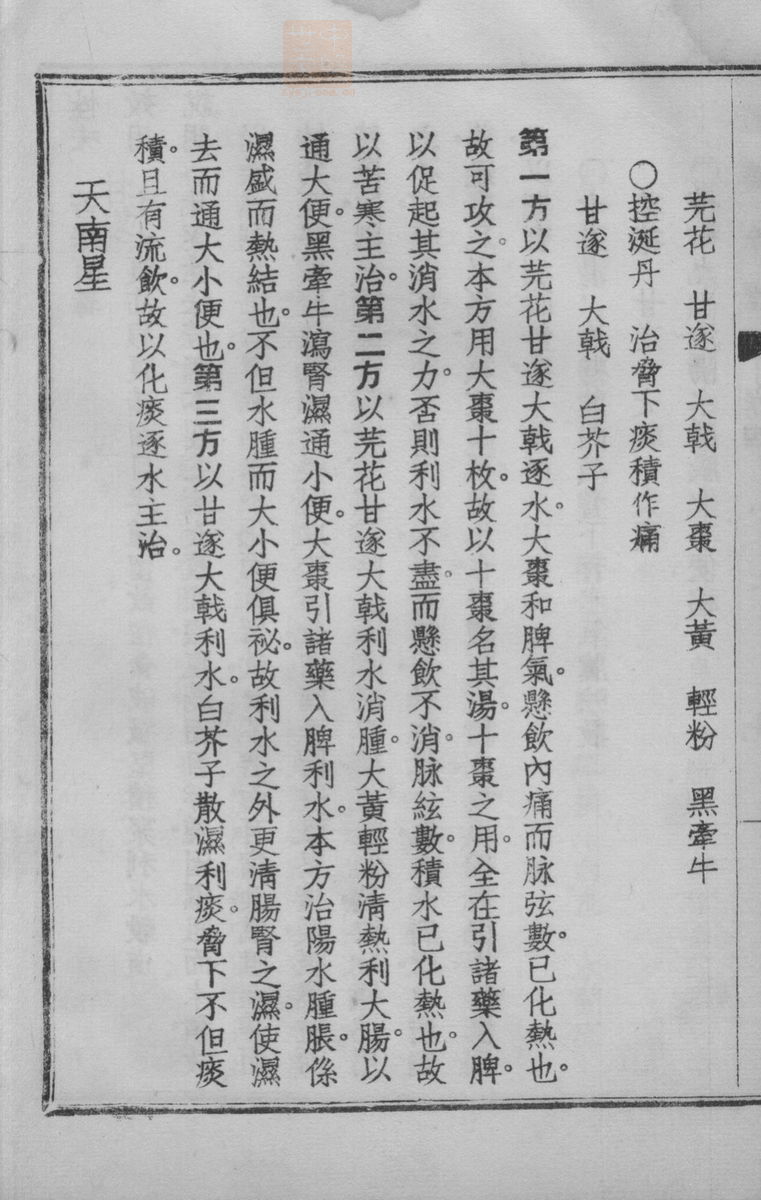 芫花　甘遂　大戟　大棗　大黃　輕粉　黑牽牛
〇控涎丹　治脅下痰積作痛
甘遂　大戟　白芥子
第一方以芫花甘遂大戟逐水。大棗和脾氣。懸飲內痛而脉弦數。已化熱也。
故可攻之。本方用大棗十枚。故以十棗名其湯。十棗之用。全在引諸藥入脾。
以促起其消水之力。否則利水不盡。而懸飲不消。脉絃數。積水已化熱也。故
以苦寒主治。第二方以芫花甘遂大戟利水消腫。大黃輕粉淸熱利大腸。以
通大便。黑牽牛瀉腎濕通小便。大棗引諸藥入脾利水。本方治陽水腫脹。係
濕盛而熱結也。不但水腫而大小便俱祕。故利水之外更淸腸腎之濕。使濕
去而通大小便也。第三方以甘遂大戟利水。白芥子散濕利痰。脅下不但痰
積。且有流飲。故以化痰逐水主治。
天南星